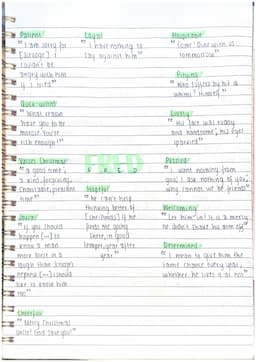 Patient
"I am sorry for
[Scrooge] I
couldn't be
angry with him
if I tried"
Loyal
"I have nothing to
say against him"
Hospitable
"Come! Dine with us
tomorrow"
Pitying
"Who suffers by his ill
whims? Himself"
Quick-witted
"What reason
have you to be
morose? You're
rich enough!"
Lively
"His face was ruddy
and handsome; his eyes
sparkled"
Values Christmas
"a good time;
a kind, forgiving,
charitable, pleasant
time"
FRED
F R E D
Hopeful
"he can't help
thinking better of
[Christmas] if he
finds me going
there, in good
temper, year after
year"
Puzzled
"I want nothing from
you; I ask nothing of you;
why cannot we be friends"
Jovial
"If you should
happen [...] to
know a man
more blest in a
laugh than Scrooge's
nephew [...] I should
like to know him
too"
Welcoming
"Let him in! It is a mercy
he didn't shake his arm off"
Determined
"I mean to give him the
same chance every year,
whether he likes it or not"
Cheerful
"Merry Christmas
uncle! God save you!"